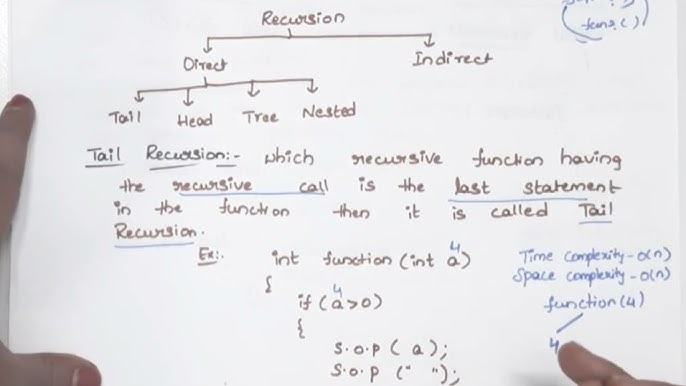 func()
Recursion
Direct Indirect
Tail Head Tree Nested
Tail Recursion:- which recursive function having
the recursive call is the last statement
in the function then it is called Tail
Recursion.
Ex:- int function (int a)
4
{
if (a>0)
4
{
S.O.P ( a);
S.O.P (" ");
Time complexity - O(n)
Space complexity - O(n)
function (4)
4